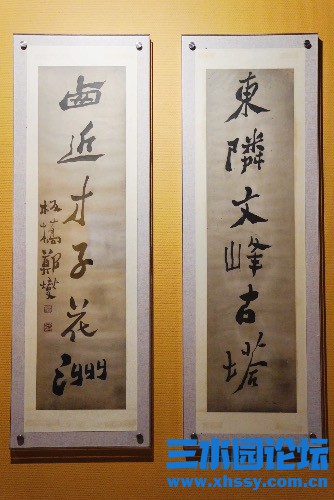 東隣文峰古塔
西近才子花洲
板橋鄭燮
三水园论坛
www.xhssy.com.cn